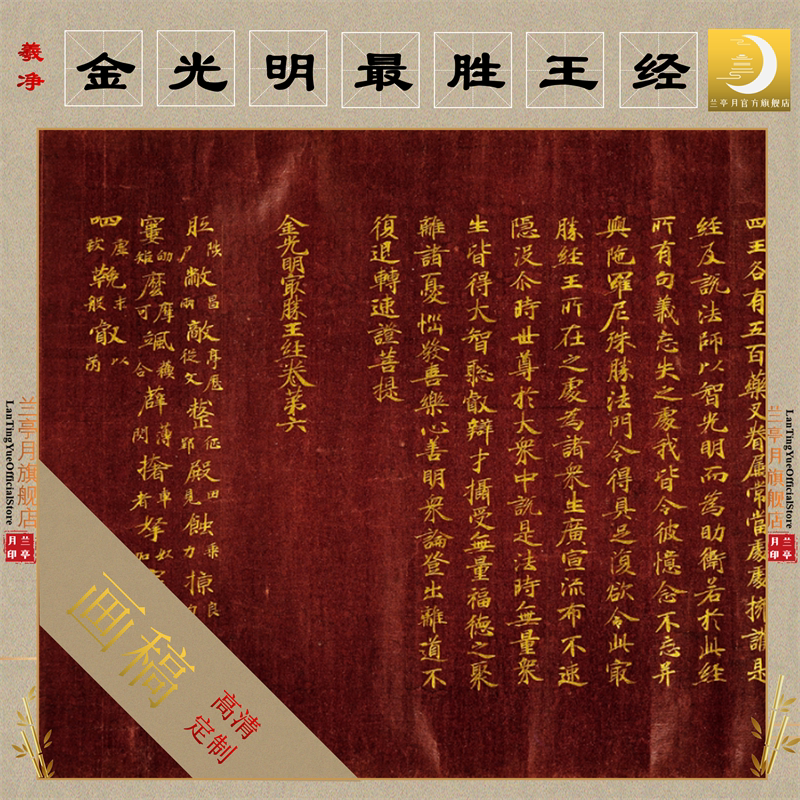 義净
金光明最胜王经
兰亭月官方旗舰店
四王各有五百藥叉眷屬常當處處擁護是
經及說法師以智光明而為助衛若於此經
所有句義忘失之處我皆令彼憶念不忘并
與陁羅尼殊勝法門令得具足復欲令此冣
勝經王所在之處為諸衆生廣宣流布不速
隱没尒時世尊於大衆中說是法時無量衆
生皆得大智聡叡辯才攝受無量福德之聚
離諸憂惱發喜樂心善明衆論登出離道不
復退轉速證菩提
金光明冣勝王經卷第六
兰亭月旗舰店
LanTingYueOfficialStore
兰亭月印
兰亭月旗舰店
LanTingYueOfficialStore
兰亭月印
画稿
高清
定制